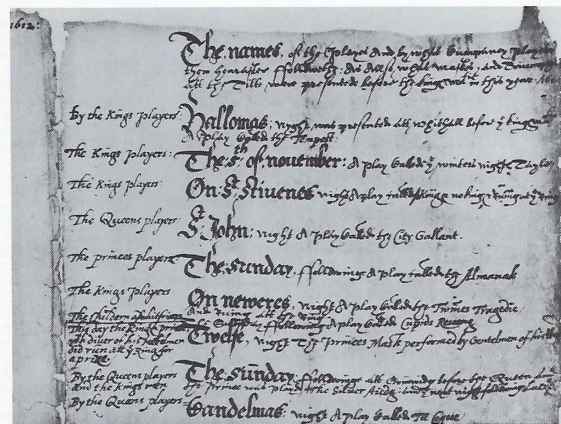 1612:
The names of the playes And by what Cumpaney played
them hearafter ffollowethe: As Allso what Maskes, and
Att the Tilt were presented before the kinges in this year
By the Kings players: Hallomas: night, was presented att Whithall before the kinges
A play Called the Tempest.
The Kings players: The 5th of november: A play Called the winters nightes Tayle
The Kings players: On St Stivenes night A play called A King & no King
The Queens players: St John: night A play Called the City Gallant.
The princes players: The Sunday ffollowinge A play Called the Almanak
The Kings players: On neweres night A play Called the Twines Tragedie
And Runing Att the Ring
The Children of
The Sunday ffollowing A play Called Cupids Revenge
This day the King & prince
with diver of his noblemen
did run att the Ring for
a prize
Twelfe night The princes Mask performed by Gentelmen of his
By the Queens players
And the Kings men
The Sunday: ffollowinge att Grinwidg before the Queen And
the Prince was playd the Silver Aiedg: And the next night following
By the Queens players Candelmas: night A play Called Tu